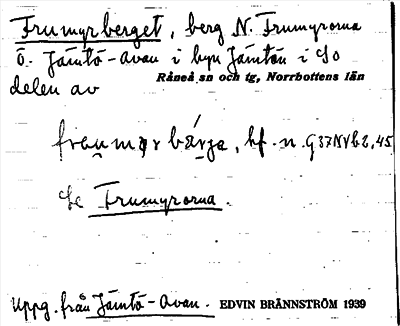 Frumyrberget, berg N. Frumyrorna
Ö. Jämtö-Avan i byn Jämtön i SO
Råneå sn och tg, Norrbottens län
delen av
bf. n.
Se Frumyrorna.
Uppg. från Jämtö-Avan. EDVIN BRÄNNSTRÖM 1939